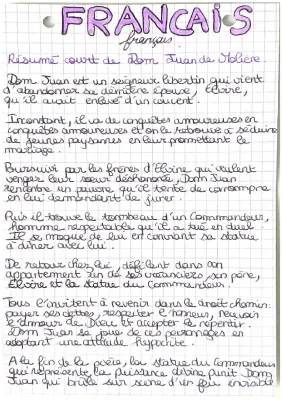 FRANCAIS
français
Résumé court de Dom Juan de Molière.
Dom Juan est un seigneur libertin qui vient
d'abandonner sa dernière épouse, Elvire,
qu'il avait enlevé d'un couvent.
Inconstant, il va de conquêtes amoureuses en
conquêtes amoureuses et on le retrouve à séduire
de jeunes paysannes en leur promettant le
mariage.
Poursuivi par les frères d'Elvire qui veulent
venger leur sœur déshonorée, Dom Juan
rencontre un pauvre qu'il tente de corrompre
en lui demandant de jurer.
Puis il trouve le tombeau d'un Commandeur,
homme respectable qu'il a tué en duel.
Il se moque de lui en conviant sa statue
à dîner avec lui.
De retour chez lui, défilent dans son
appartement un de ses créanciers, son père,
Elvire et la statue du Commandeur.
Tous l'invitent à revenir dans le droit chemin:
payer ses dettes, respecter l'honneur,
l'amour de Dieu et accepter le repentir.
Dom Juan se joue de ces personnages en
adoptant une attitude hypocrite.
A la fin de la pièce, la statue du Commandeur
qui représente la puissance divine punit Dom
Juan qui brûle sur scène d'un feu invisible